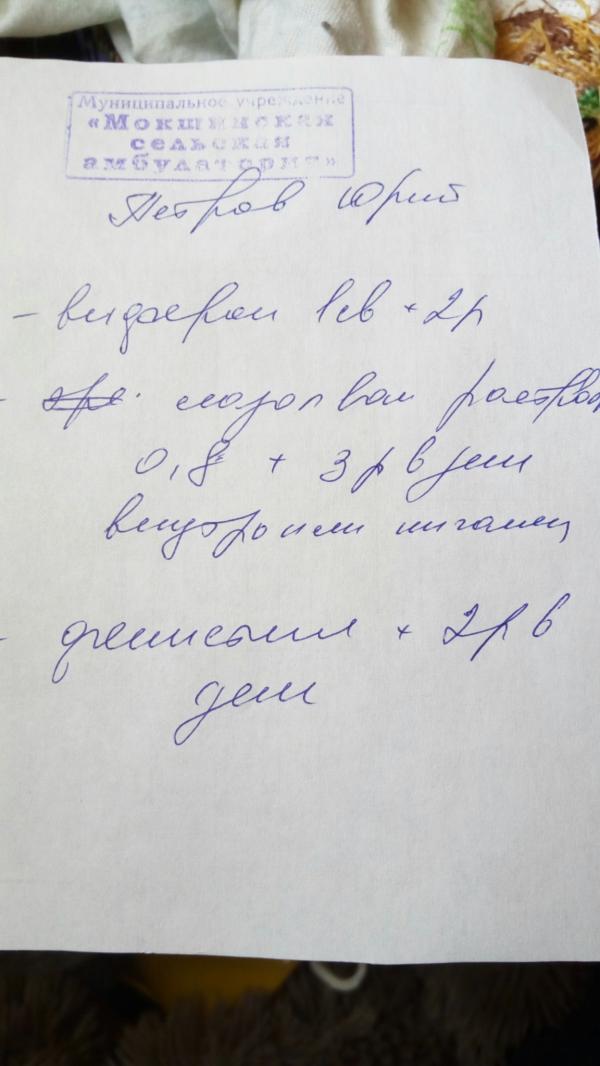 Муниципальное учреждение
«Мокшинская
сельская
амбулатория»
Петров Юрий
- виферон 1св × 2р
- лазолван раствор
0,8 × 3 р в день
внутрь или
- фенистил × 2р в
день